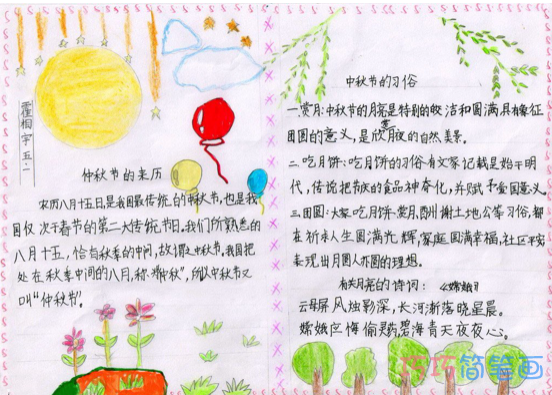 霍相宇五二
仲秋节的来历
农历八月十五日,是我国最传统的中秋节,也是我
国仅次于春节的第二大传统节日。我们所熟悉的
八月十五,恰当秋季的中间,故谓之中秋节。我国把
处在秋季中间的八月,称"仲秋",所以中秋节又
叫"仲秋节"。
中秋节的习俗
一.赏月:中秋节的月亮是特别的皎洁和圆满,具有象征
团圆的意义,是欣赏月夜的自然美景。
二.吃月饼:吃月饼的习俗有文家记载是始于明
代,传说把节庆的食品神奇化,并赋予全国意义。
三.团圆:大家吃月饼、赏月、酬谢土地公等习俗,都
在祈求人生圆满光辉,家庭圆满幸福,社区平安
表现出月圆人亦圆的理想。
有关月亮的诗词: 《嫦娥》
云母屏风烛影深,长河渐落晓星晨。
嫦娥应悔偷灵药,碧海青天夜夜心。
巧巧简笔画